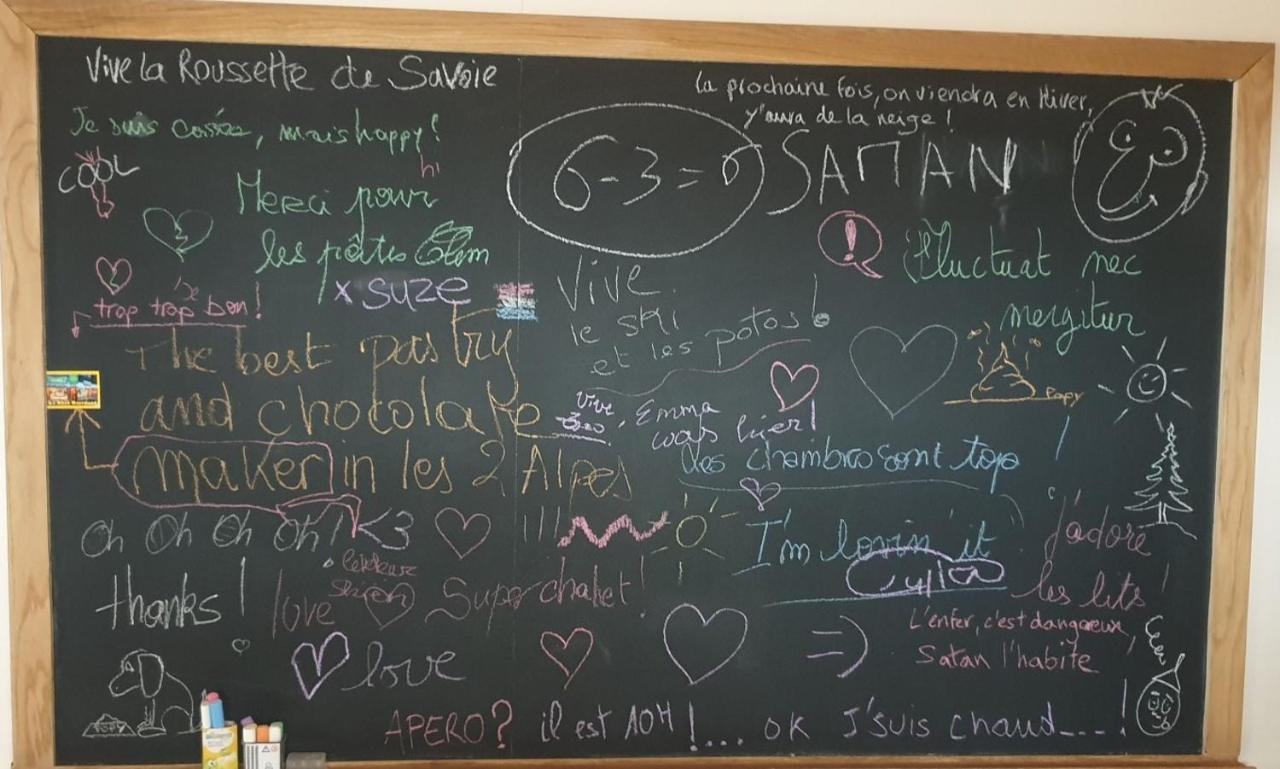 Vive la Roussette de Savoie
la prochaine fois, on viendra en Hiver,
y'aura de la neige !
Je suis cassée, mais happy!
hi
COOL
6-3=6
SATAN
Merci pour
les pâtes
!
Fluctuat nec
mergitur
x suze
trop trop bon !
Vive
le ski
et les potos !
The best pastry
and chocolate
maker in les 2 Alpes
Papy
Vive
Emma
was hier!
les chambres sont top !
Oh Oh Oh Oh! <3
I'm lovin' it
j'adore
les lits !
thanks !
love
Super chalet!
L'enfer, c'est dangereux,
Satan l'habite
love
=)
APERO? il est 10H !... OK J'suis chaud---!